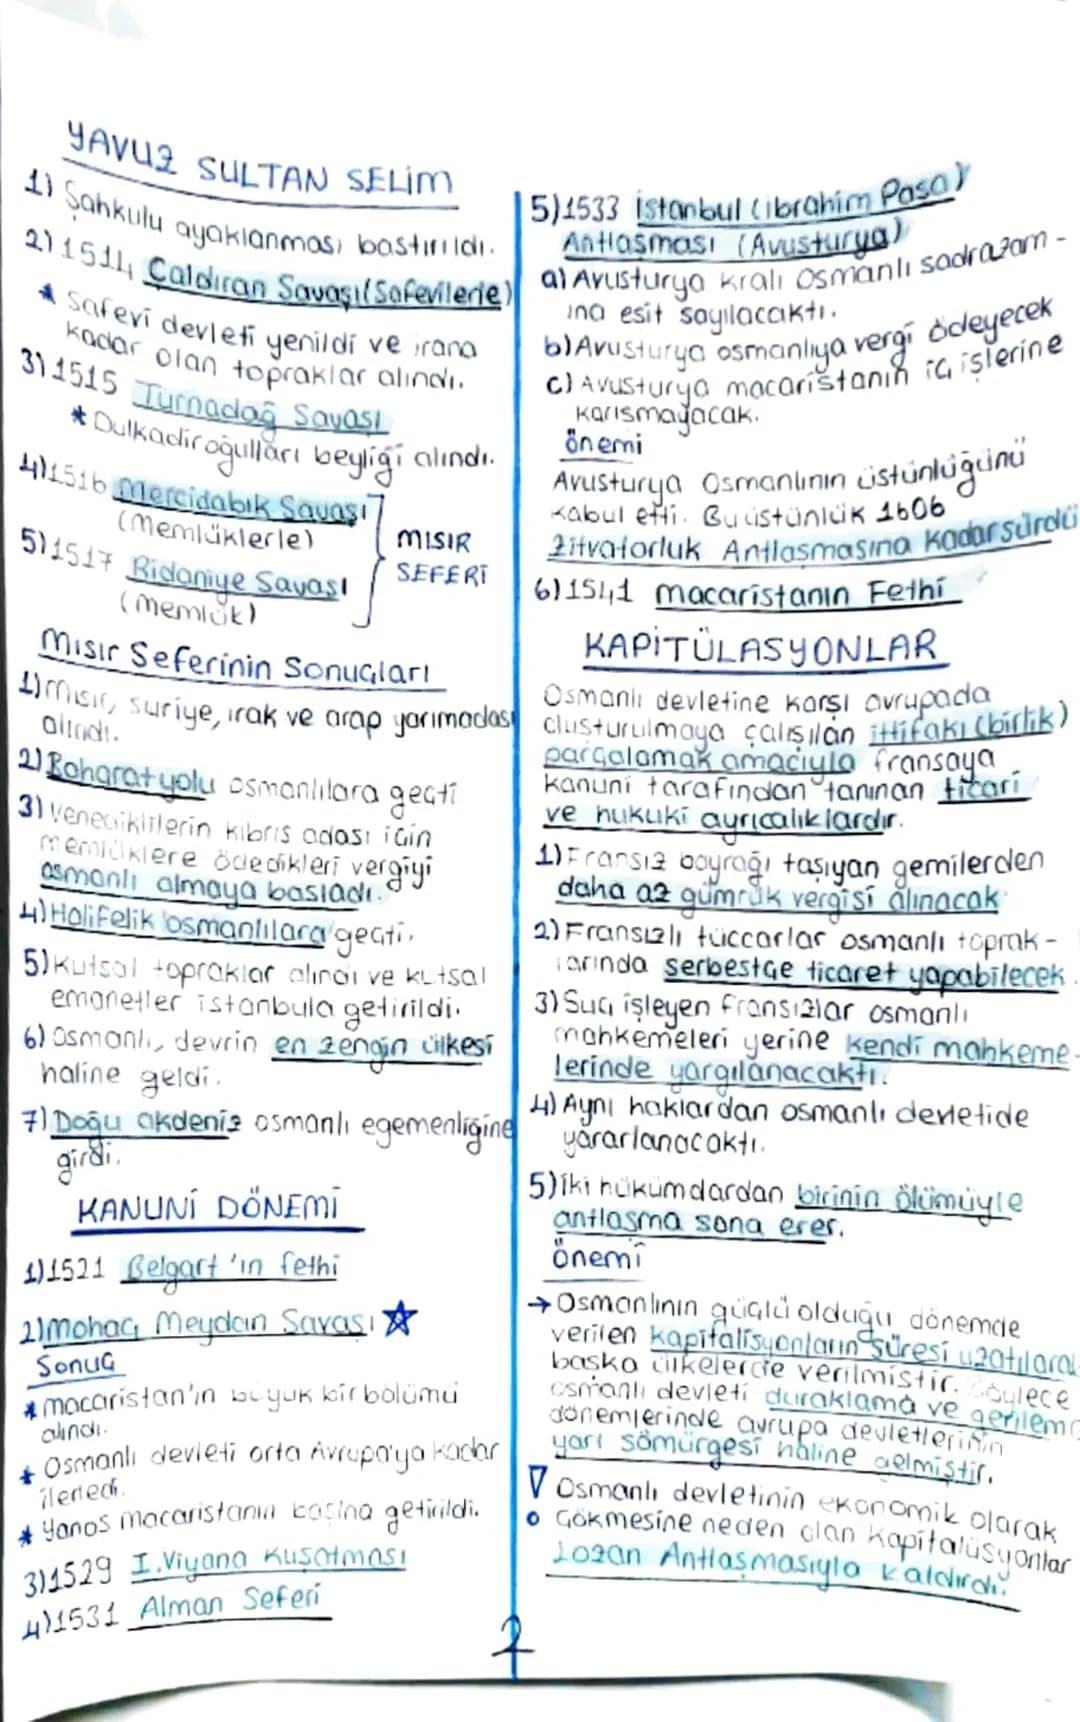 YAVUZ SULTAN SELİM
1) Şahkulu ayaklanması bastırıldı.
2) 1514 Çaldıran Savaşı (Safevilerle)
* Safevi devleti yenildi ve irana
kadar olan topraklar alındı.
3) 1515 Turnadağ Savaşı
* Dulkadiroğulları beyliği alındı.
4) 1516 Mercidabık Savaşı
(Memlüklerle)
5) 1517 Ridaniye Savaşı
(Memlük)
MISIR
SEFERİ
Mısır Seferinin Sonuçları
1) Mısır, suriye, ırak ve arap yarımadası
alındı.
2) Baharat yolu osmanlılara geçti
3) Venediklilerin kıbrıs adası için
memlüklere ödedikleri vergiyi
osmanlı almaya başladı.
4) Halifelik osmanlılara geçti.
5) Kutsal topraklar alındı ve kutsal
emanetler istanbula getirildi.
6) Osmanlı, devrin en zengin ülkesi
haline geldi.
7) Doğu akdeniz osmanlı egemenliğine
girdi.
KANUNİ DÖNEMİ
1) 1521 Belgart'ın fethi
2) Mohaç Meydan Savaşı ☆
Sonuç
* macaristan'ın büyük bir bölümü
alındı.
* Osmanlı devleti orta Avrupa'ya kadar
ilerledi.
* Yanos macaristanın başına getirildi.
3) 1529 I.Viyana Kuşatması
4) 1531 Alman Seferi
5) 1533 İstanbul (ibrahim Paşa)
Antlaşması (Avusturya)
a) Avusturya kralı osmanlı sadrazam-
ına eşit sayılacaktı.
b) Avusturya osmanlıya vergi ödeyecek
c) Avusturya macaristanın iç işlerine
karışmayacak.
önemi
Avusturya Osmanlının üstünlüğünü
kabul etti. Bu üstünlük 1606
Zitvatorluk Antlaşmasına kadar sürdü
6) 1541 macaristanın Fethi
KAPİTÜLASYONLAR
Osmanlı devletine karşı avrupada
oluşturulmaya çalışılan ittifakı (birlik)
parçalamak amacıyla fransaya
kanuni tarafından tanınan ticari
ve hukuki ayrıcalıklardır.
1) Fransız bayrağı taşıyan gemilerden
daha az gümrük vergisi alınacak
2) Fransızlı tüccarlar osmanlı toprak-
larında serbestçe ticaret yapabilecek.
3) Suç işleyen fransızlar osmanlı
mahkemeleri yerine kendi mahkeme-
lerinde yargılanacaktı.
4) Aynı haklardan osmanlı devletide
yararlanacaktı.
5) İki hükümdardan birinin ölümüyle
antlaşma sona erer.
önemi
→ Osmanlının güçlü olduğu dönemde
verilen kapitalisyonların süresi uzatılarak
başka ülkelerde verilmiştir. Böylece
osmanlı devleti duraklama ve gerileme
dönemlerinde avrupa devletlerinin
yarı sömürgesi haline gelmiştir.
Osmanlı devletinin ekonomik olarak
çökmesine neden olan kapitalüsyonlar
Lozan Antlaşmasıyla kaldırdı.
2